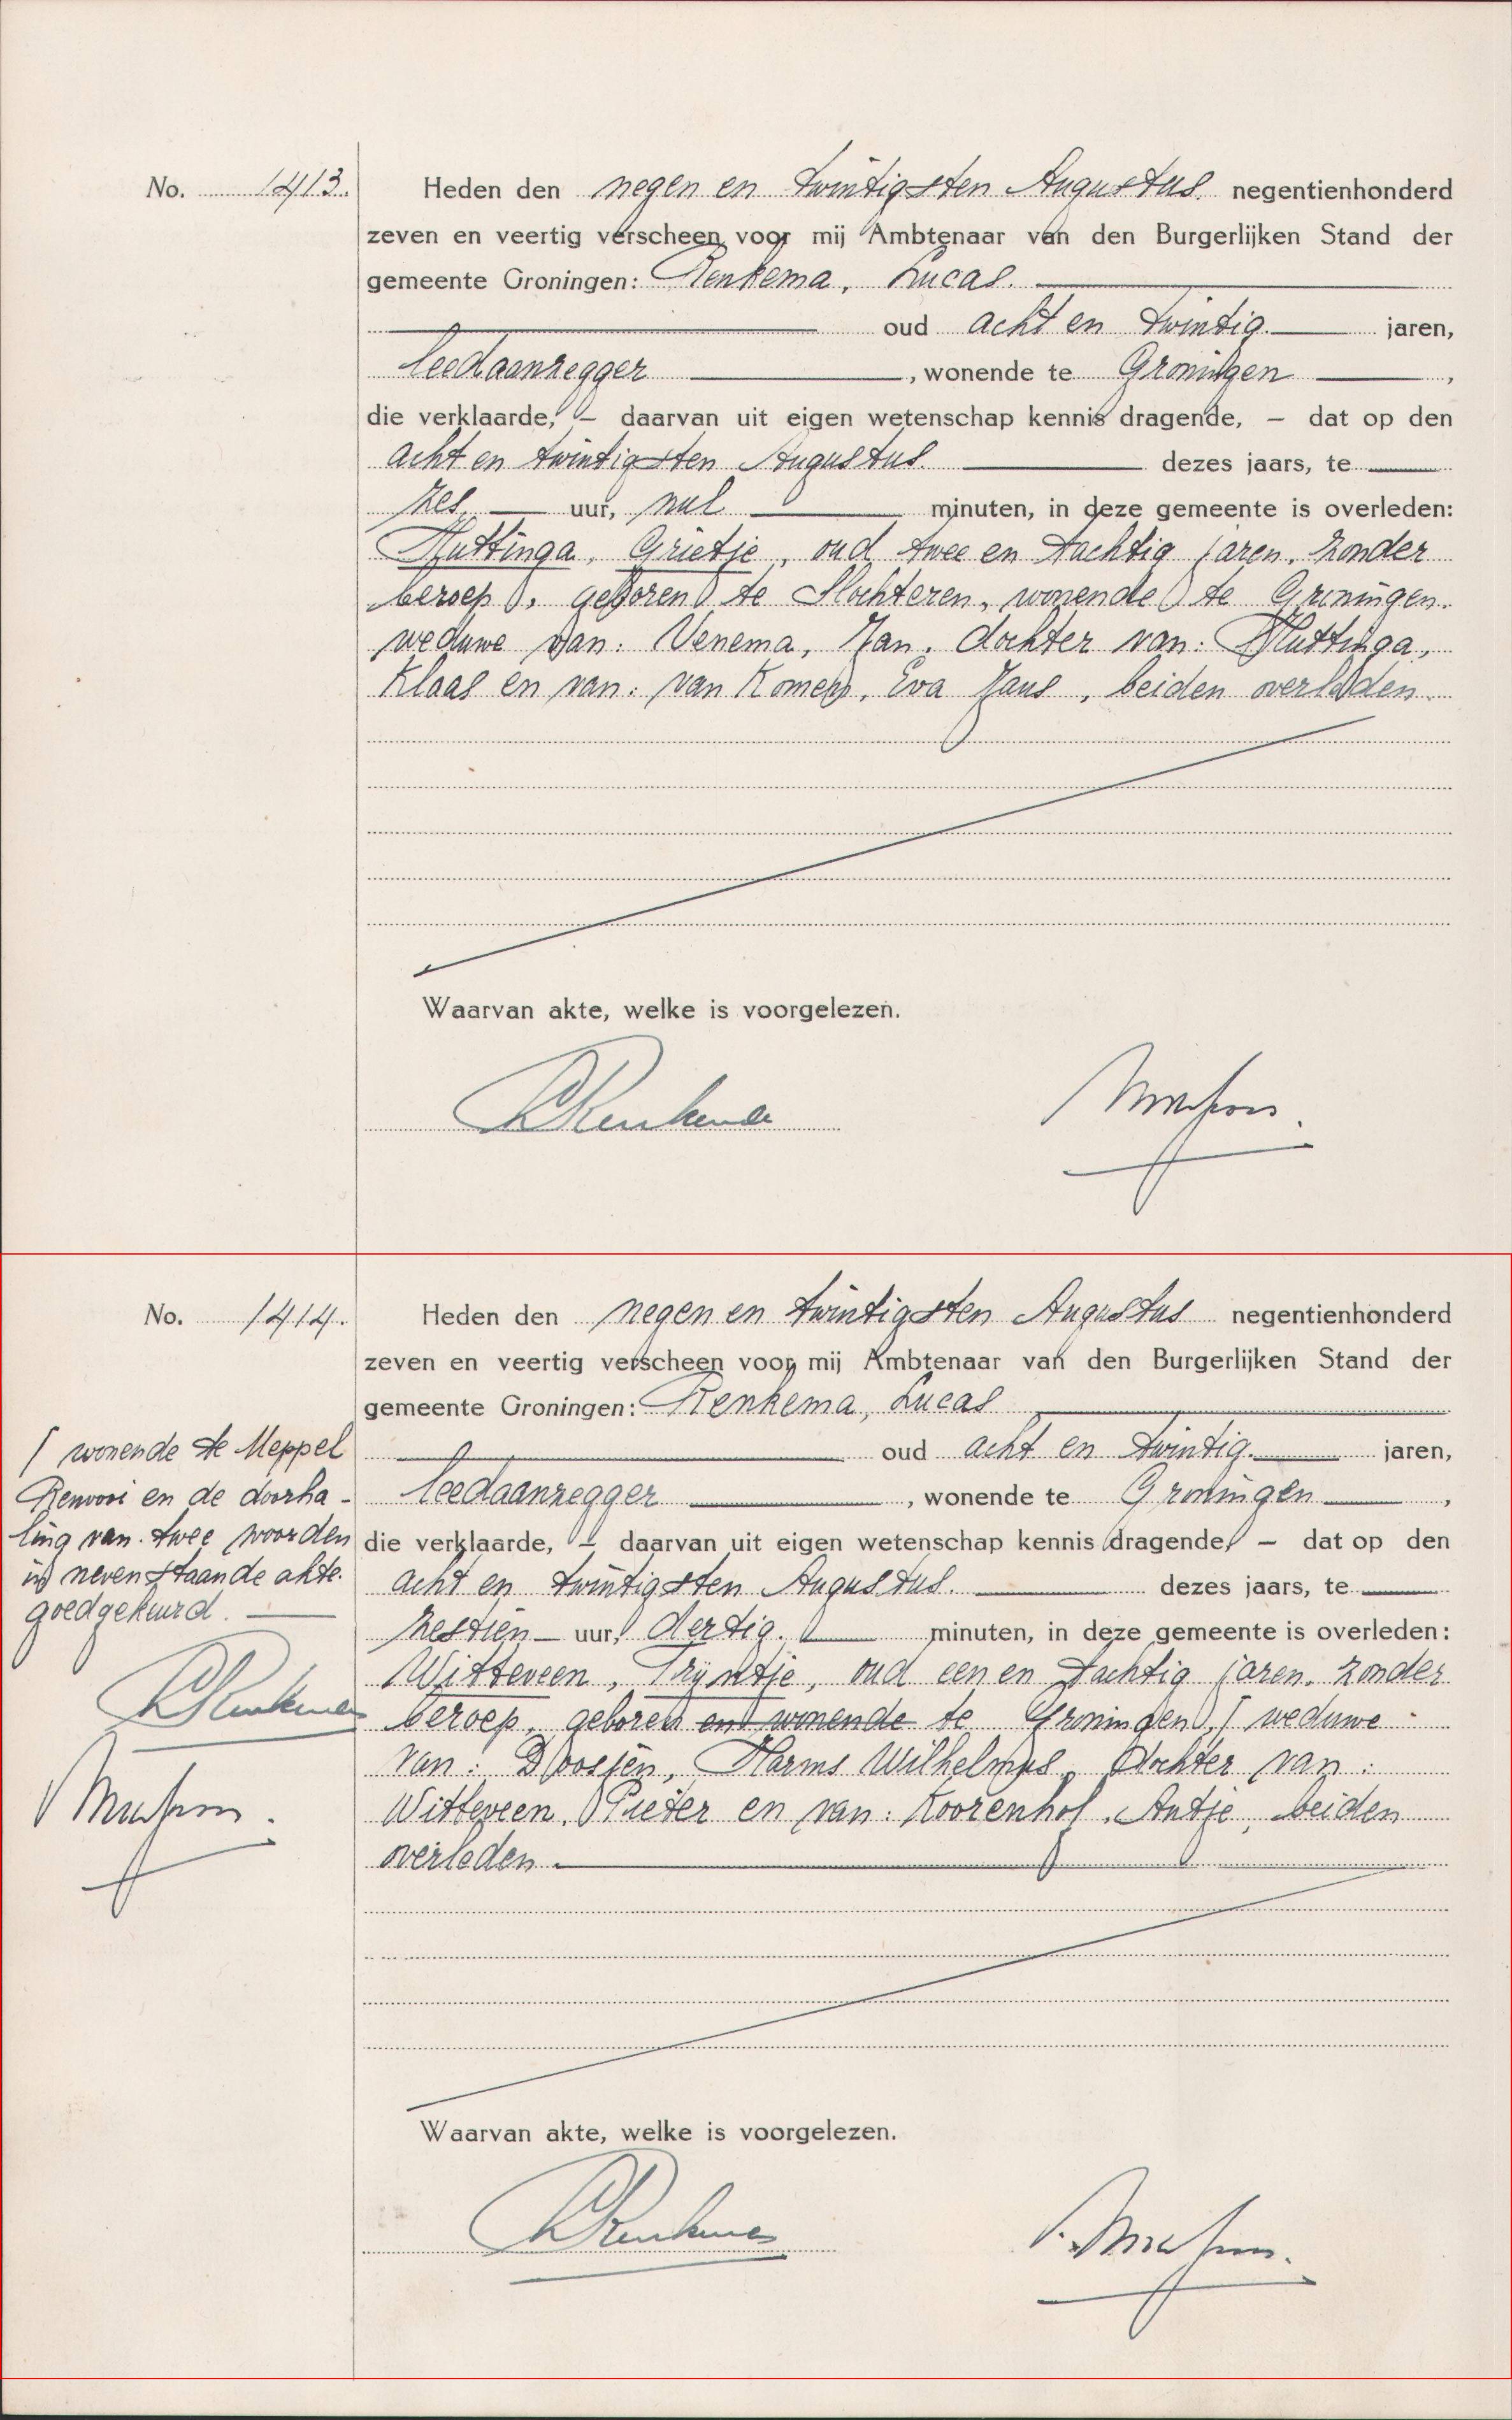 No. 1413.
Heden den negen en twintigsten Augustus negentienhonderd
zeven en veertig verscheen voor mij Ambtenaar van den Burgerlijken Stand der
gemeente Groningen: Renkema, Lucas.
oud acht en twintig jaren,
leedaanzegger, wonende te Groningen,
die verklaarde, – daarvan uit eigen wetenschap kennis dragende, – dat op den
acht en twintigsten Augustus. dezes jaars, te
zes uur, nul minuten, in deze gemeente is overleden:
Huttinga, Grietje, oud twee en tachtig jaren, zonder
beroep, geboren te Slochteren, wonende te Groningen.
weduwe van: Venema, Jan, dochter van: Huttinga,
Klaas en van: van Komen, Eva Jans, beiden overleden.
Waarvan akte, welke is voorgelezen.
LRenkema
No. 1414.
Heden den negen en twintigsten Augustus negentienhonderd
zeven en veertig verscheen voor mij Ambtenaar van den Burgerlijken Stand der
gemeente Groningen: Renkema, Lucas
oud acht en twintig. jaren,
leedaanzegger, wonende te Groningen,
die verklaarde, – daarvan uit eigen wetenschap kennis dragende, – dat op den
acht en twintigsten Augustus. dezes jaars, te
zestien uur, dertig. minuten, in deze gemeente is overleden:
Witteveen, Trijntje, oud een en tachtig jaren, zonder
beroep, geboren en wonende te Groningen, / weduwe
van: Doosjen, Harms Wilhelmus, dochter van:
Witteveen, Pieter en van: Koorenhof, Antje, beiden
overleden.
/ wonende te Meppel
Renvooi en de doorha-
ling van twee woorden
in nevenstaande akte.
goedgekeurd.
LRenkema
Waarvan akte, welke is voorgelezen.
LRenkema